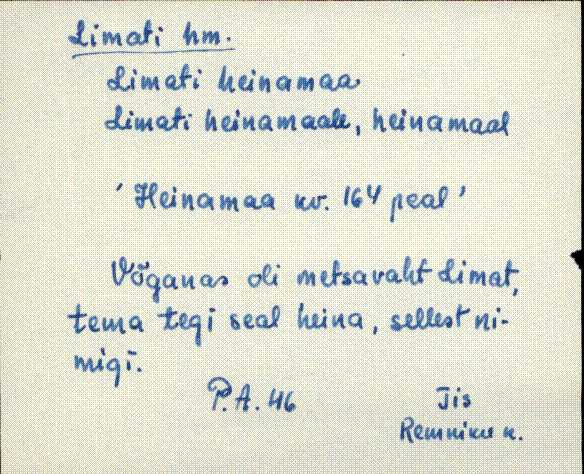 Limati hm.
Limati heinamaa
Limati heinamaale, heinamaal
'Heinamaa kv. 164 peal'
Võganas oli metsavaht Limat,
tema tegi seal heina, sellest ni-
migi.
P.A. 46 Jis
Remniku k.